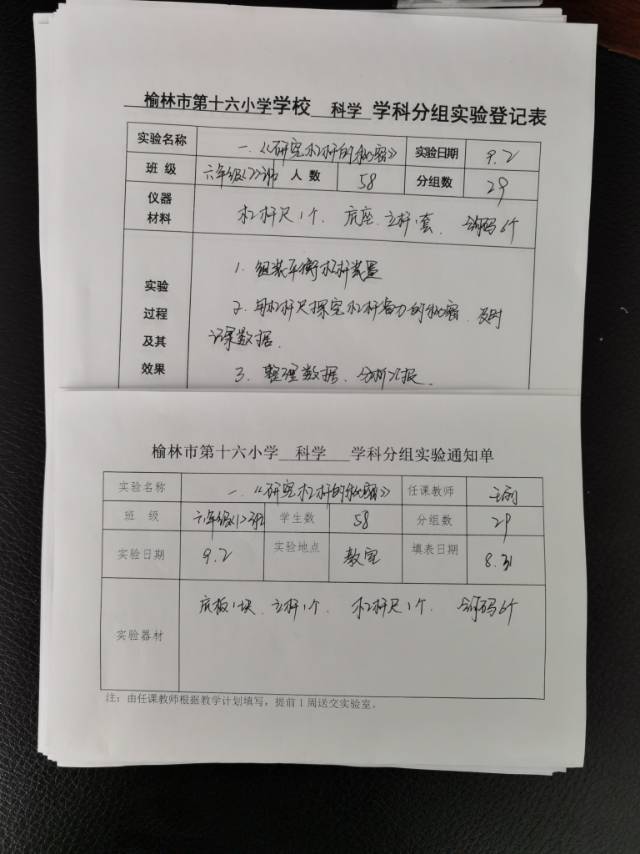 榆林市第十六小学学校 科学 学科分组实验登记表
实验名称 一、《研究杠杆的秘密》 实验日期 9.2
班级 六年级(1)班 人数 58 分组数 29
仪器材料 杠杆尺1个 底座、立杆1套 钩码6个
实验过程及其效果
1. 组装平衡杠杆装置
2. 用杠杆尺探究杠杆省力的秘密、及时
记录数据.
3. 整理数据、分析汇报.
榆林市第十六小学 科学 学科分组实验通知单
实验名称 一、《研究杠杆的秘密》 任课教师
班级 六年级(1)班 学生数 58 分组数 29
实验日期 9.2 实验地点 教室 填表日期 8.31
实验器材 底板1块、立杆1个、杠杆尺1个、钩码6个
注：由任课教师根据教学计划填写，提前1周送交实验室。